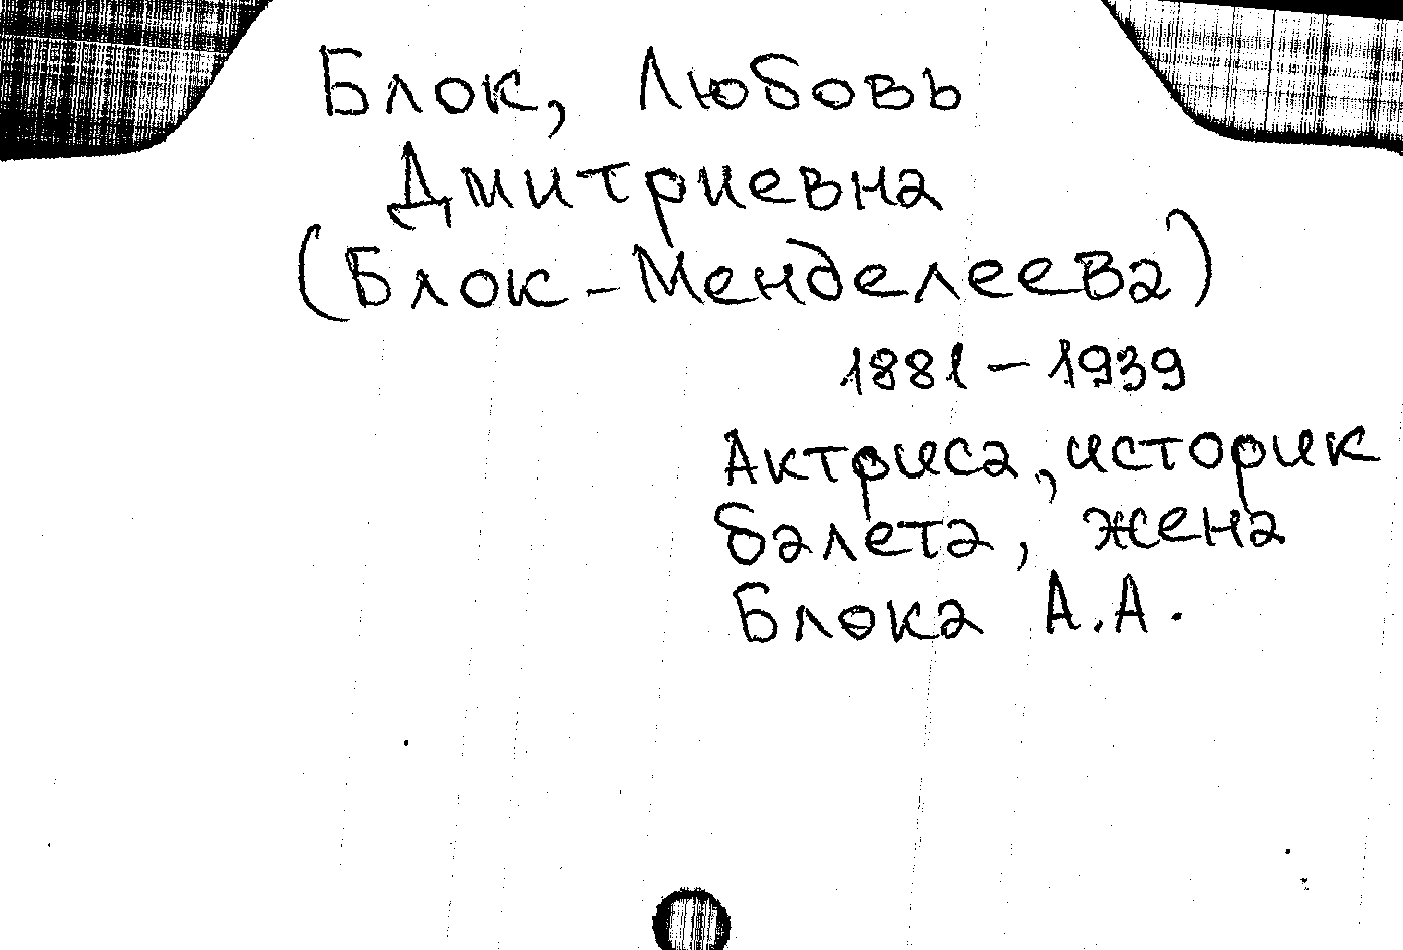 Блок, Любовь
Дмитриевна
(Блок-Менделеева)
1881-1939
Актриса, историк
балета, жена
Блока А.А.